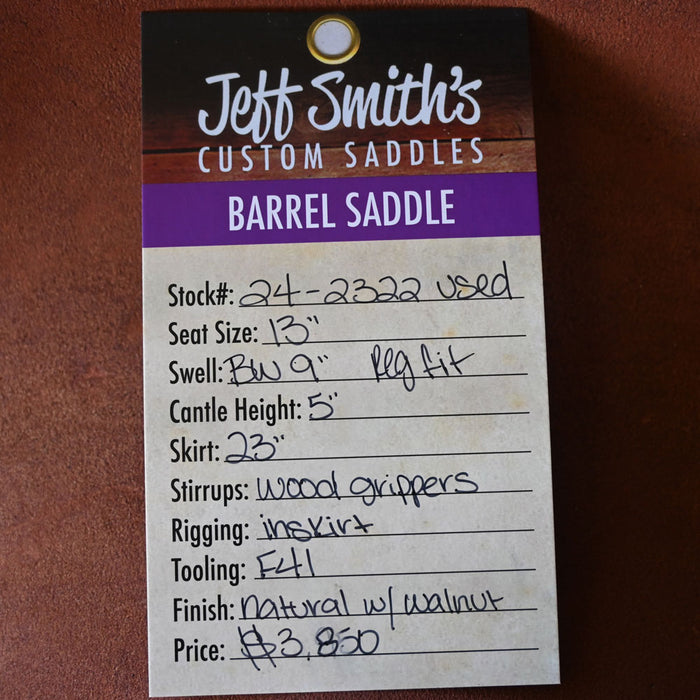 Jeff Smith's
CUSTOM SADDLES
BARREL SADDLE
Stock#: 24-2322 used
Seat Size: 13"
Swell: BW 9" Reg fit
Cantle Height: 5"
Skirt: 23"
Stirrups: wood grippers
Rigging: inskirt
Tooling: F41
Finish: natural w/ walnut
Price: $3,850